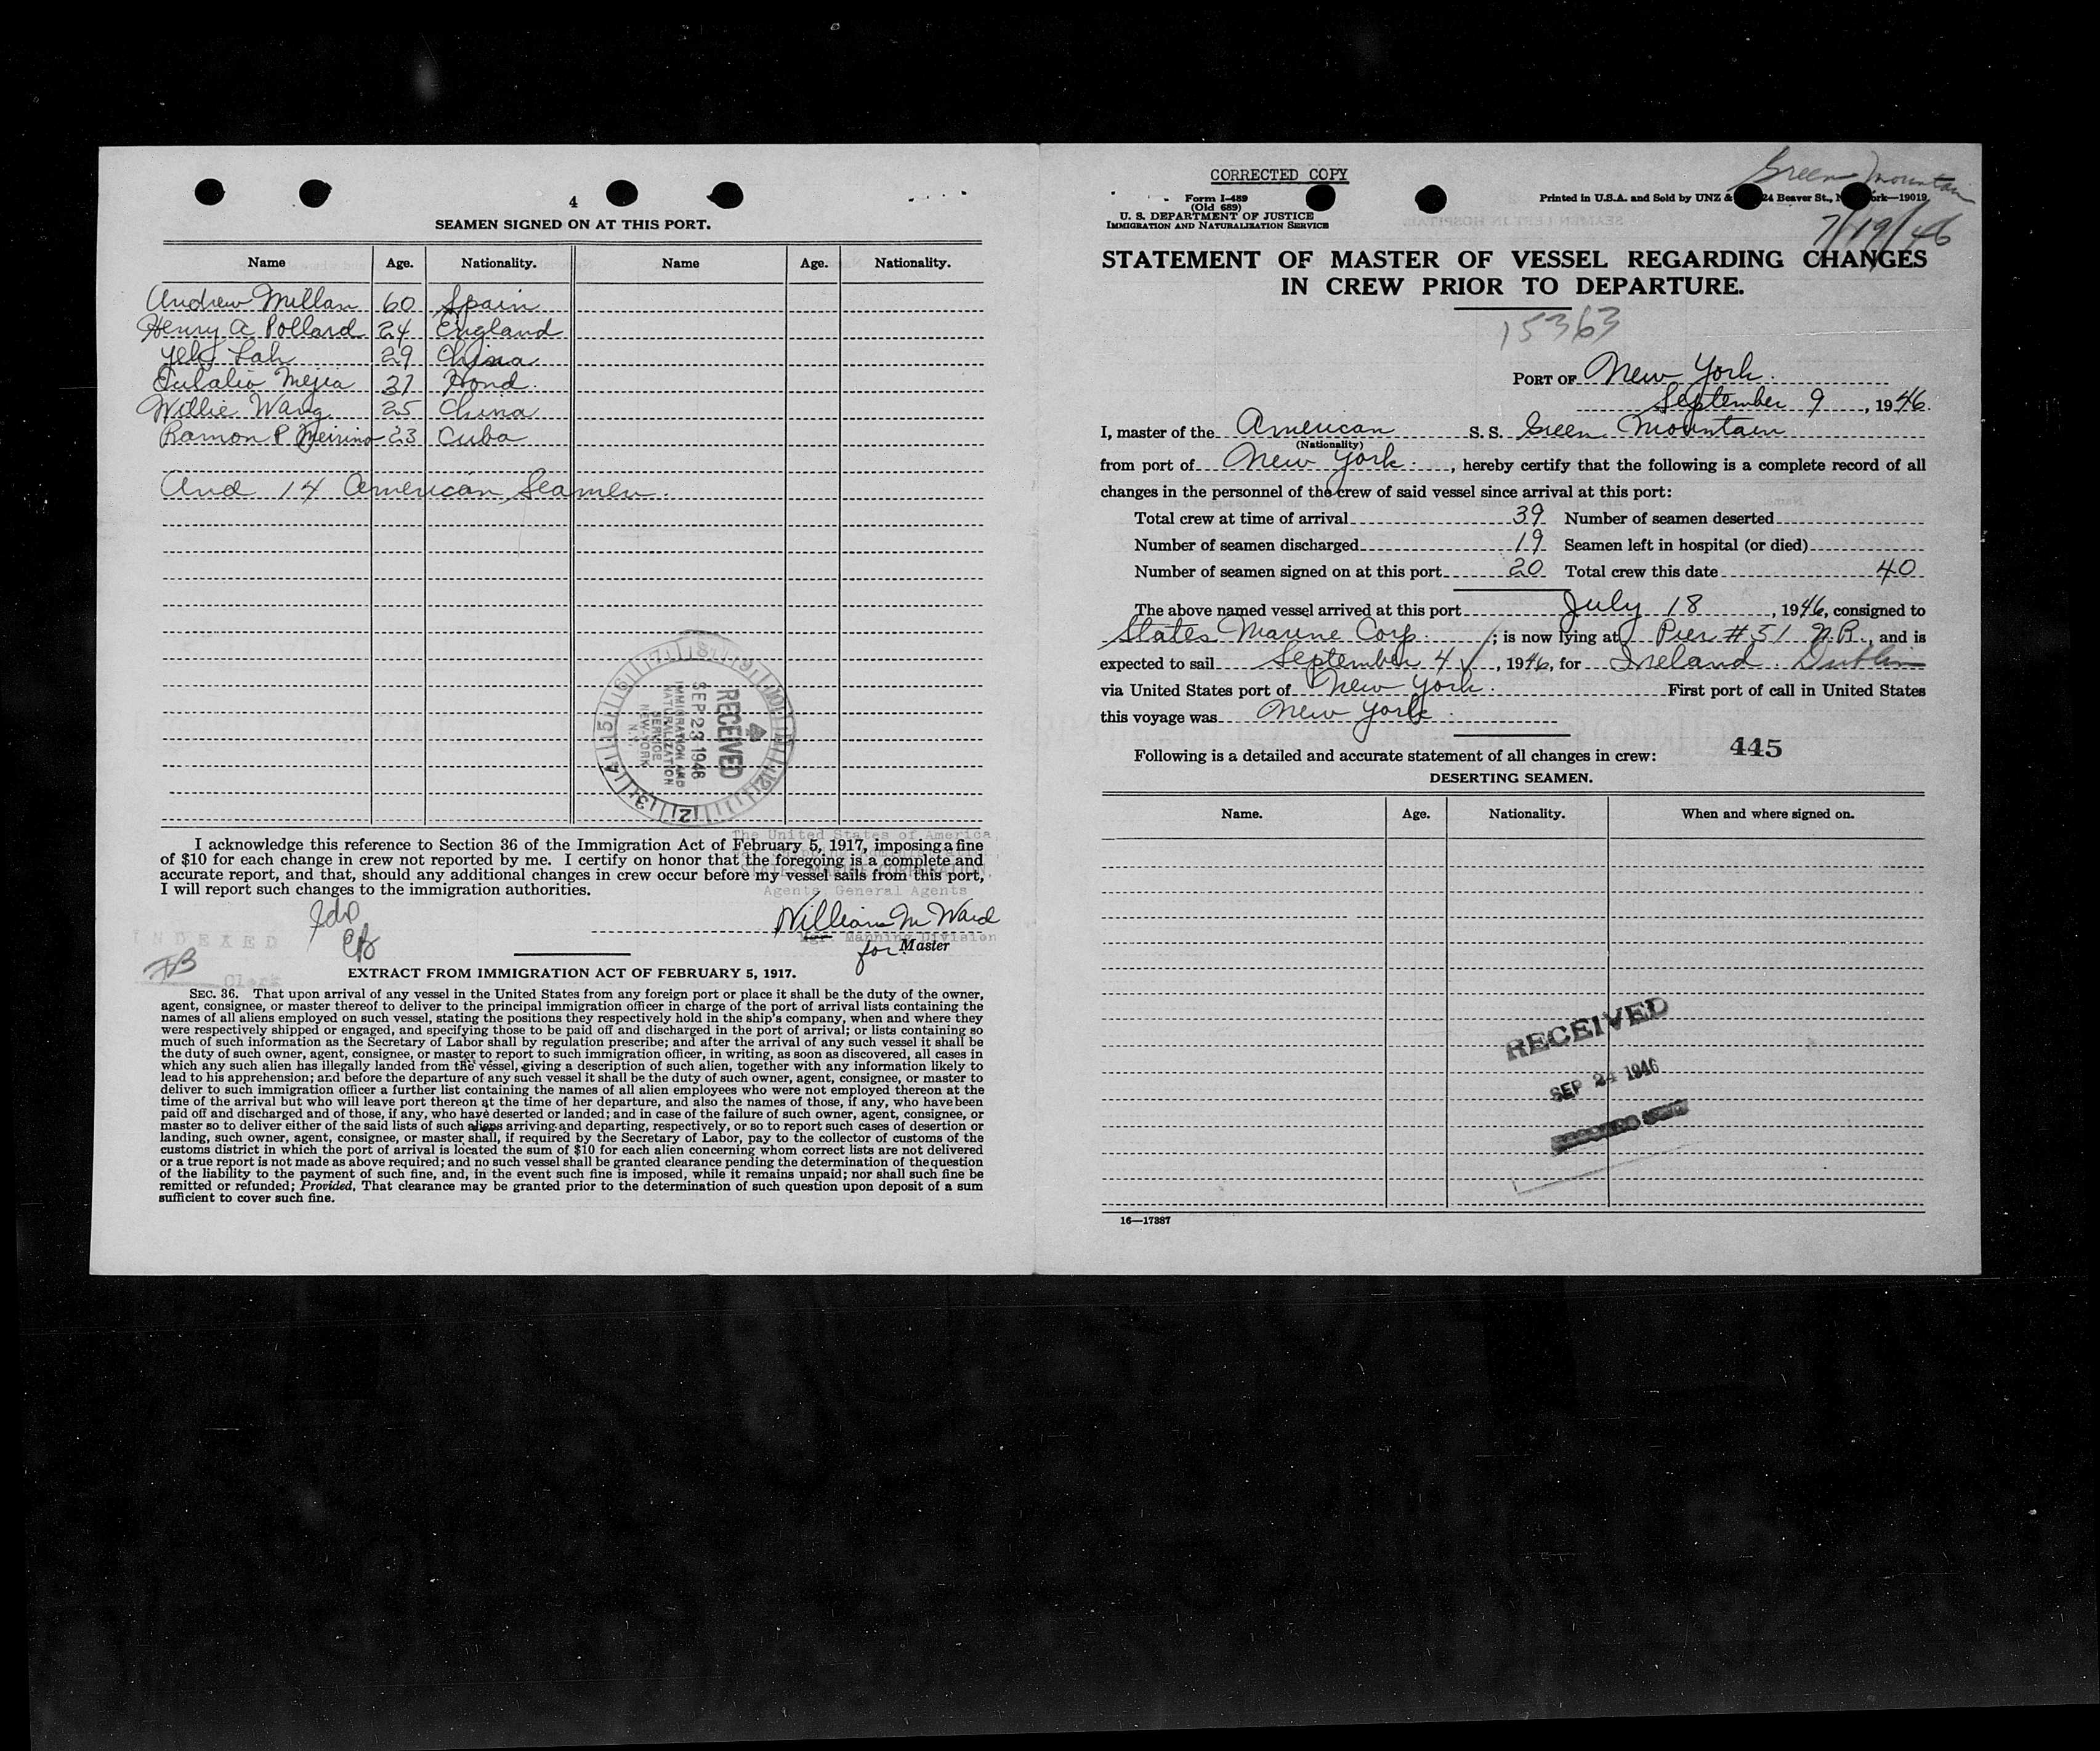 4
SEAMEN SIGNED ON AT THIS PORT.
Name Age. Nationality. Name Age. Nationality.
Andrew Millan 60 Spain
Henry A Pollard 24 England
Yek Lah 29 China
Eulalio Mejia 27 Hond.
Willie Wang 25 China
Ramon P Meirino 23 Cuba
And 14 American Seamen.
RECEIVED
SEP 23 1946
IMMIGRATION AND
NATURALIZATION
SERVICE
NEW YORK
N.Y.
The United States of America,
STATES MARINE CORPORATION,
Agents, General Agents
I acknowledge this reference to Section 36 of the Immigration Act of February 5, 1917, imposing a fine
of $10 for each change in crew not reported by me. I certify on honor that the foregoing is a complete and
accurate report, and that, should any additional changes in crew occur before my vessel sails from this port,
I will report such changes to the immigration authorities.
William M Ward
Mgr. Manning Division
for Master
INDEXED
FB
Clerk
EXTRACT FROM IMMIGRATION ACT OF FEBRUARY 5, 1917.
SEC. 36. That upon arrival of any vessel in the United States from any foreign port or place it shall be the duty of the owner,
agent, consignee, or master thereof to deliver to the principal immigration officer in charge of the port of arrival lists containing the
names of all aliens employed on such vessel, stating the positions they respectively hold in the ship's company, when and where they
were respectively shipped or engaged, and specifying those to be paid off and discharged in the port of arrival; or lists containing so
much of such information as the Secretary of Labor shall by regulation prescribe; and after the arrival of any such vessel it shall be
the duty of such owner, agent, consignee, or master to report to such immigration officer, in writing, as soon as discovered, all cases in
which any such alien has illegally landed from the vessel, giving a description of such alien, together with any information likely to
lead to his apprehension; and before the departure of any such vessel it shall be the duty of such owner, agent, consignee, or master to
deliver to such immigration officer a further list containing the names of all alien employees who were not employed thereon at the
time of the arrival but who will leave port thereon at the time of her departure, and also the names of those, if any, who have been
paid off and discharged and of those, if any, who have deserted or landed; and in case of the failure of such owner, agent, consignee, or
master so to deliver either of the said lists of such aliens arriving and departing, respectively, or so to report such cases of desertion or
landing, such owner, agent, consignee, or master shall, if required by the Secretary of Labor, pay to the collector of customs of the
customs district in which the port of arrival is located the sum of $10 for each alien concerning whom correct lists are not delivered
or a true report is not made as above required; and no such vessel shall be granted clearance pending the determination of the question
of the liability to the payment of such fine, and, in the event such fine is imposed, while it remains unpaid; nor shall such fine be
remitted or refunded; Provided, That clearance may be granted prior to the determination of such question upon deposit of a sum
sufficient to cover such fine.
CORRECTED COPY
Form I-489
(Old 689)
U. S. DEPARTMENT OF JUSTICE
IMMIGRATION AND NATURALIZATION SERVICE
Green Mountain
Printed in U.S.A. and Sold by UNZ & 24 Beaver St., ork—19019
7/19/46
STATEMENT OF MASTER OF VESSEL REGARDING CHANGES
IN CREW PRIOR TO DEPARTURE.
15363
PORT OF New York.
September 9, 1946.
I, master of the American S. S. Green Mountain
(Nationality)
from port of New York, hereby certify that the following is a complete record of all
changes in the personnel of the crew of said vessel since arrival at this port:
Total crew at time of arrival 39 Number of seamen deserted
Number of seamen discharged 19 Seamen left in hospital (or died)
Number of seamen signed on at this port 20 Total crew this date 40
The above named vessel arrived at this port July 18, 1946, consigned to
States Marine Corp.; is now lying at Pier #51 N.R., and is
expected to sail September 4, 1946, for Ireland. Dublin
via United States port of New York. First port of call in United States
this voyage was New York.
Following is a detailed and accurate statement of all changes in crew: 445
DESERTING SEAMEN.
Name. Age. Nationality. When and where signed on.
RECEIVED
SEP 24 1946
16—17387